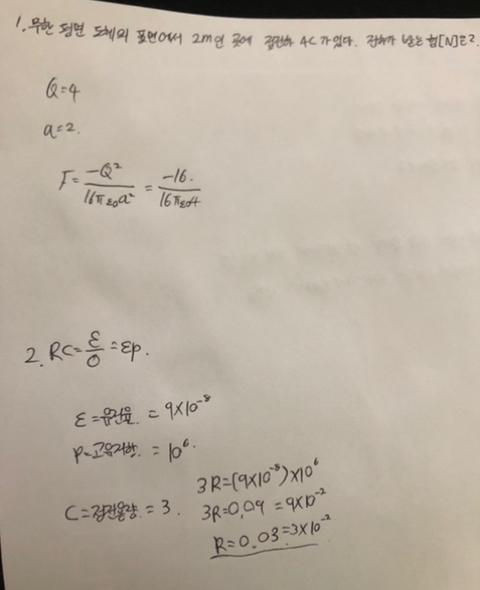 1. 무한 평면 도체의 표면에서 2m인 곳에 점전하 4C가 있다. 전하가 받는 힘[N]은?
Q=4
a=2.
F = -Q² / 16πε₀a² = -16. / 16πε₀4
2. RC = ε/σ = ερ.
ε = 유전율. = 9×10⁻⁸
ρ = 고유저항. = 10⁶.
C = 정전용량. = 3.
3R = (9×10⁻⁸)×10⁶
3R = 0.09 = 9×10⁻²
R = 0.03 = 3×10⁻²